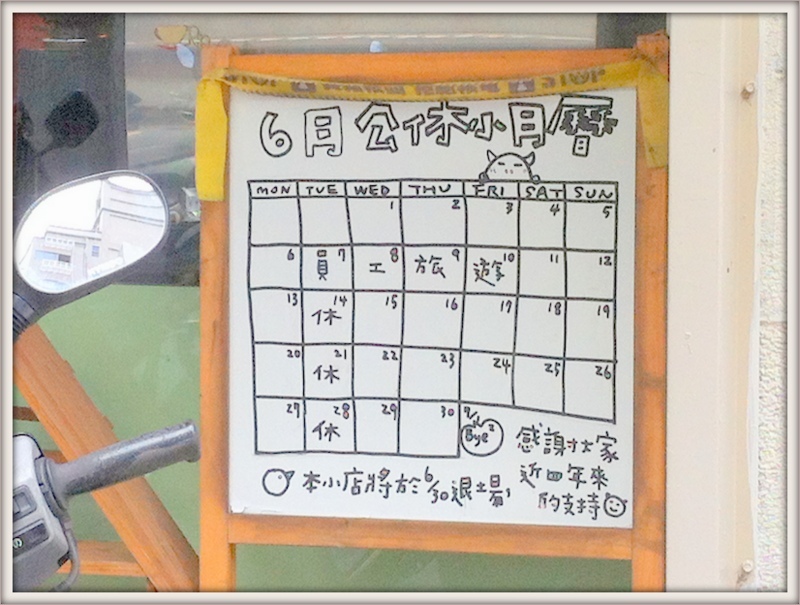 6月公休小月曆
MON TUE WED THU FRI SAT SUN
1 2 3 4 5
6 員7 工8 旅9 遊10 11 12
13 休14 15 16 17 18 19
20 休21 22 23 24 25 26
27 休28 29 30 7/1 Bye²
感謝大家
近四年來
的支持
本小店將於6/30退場,